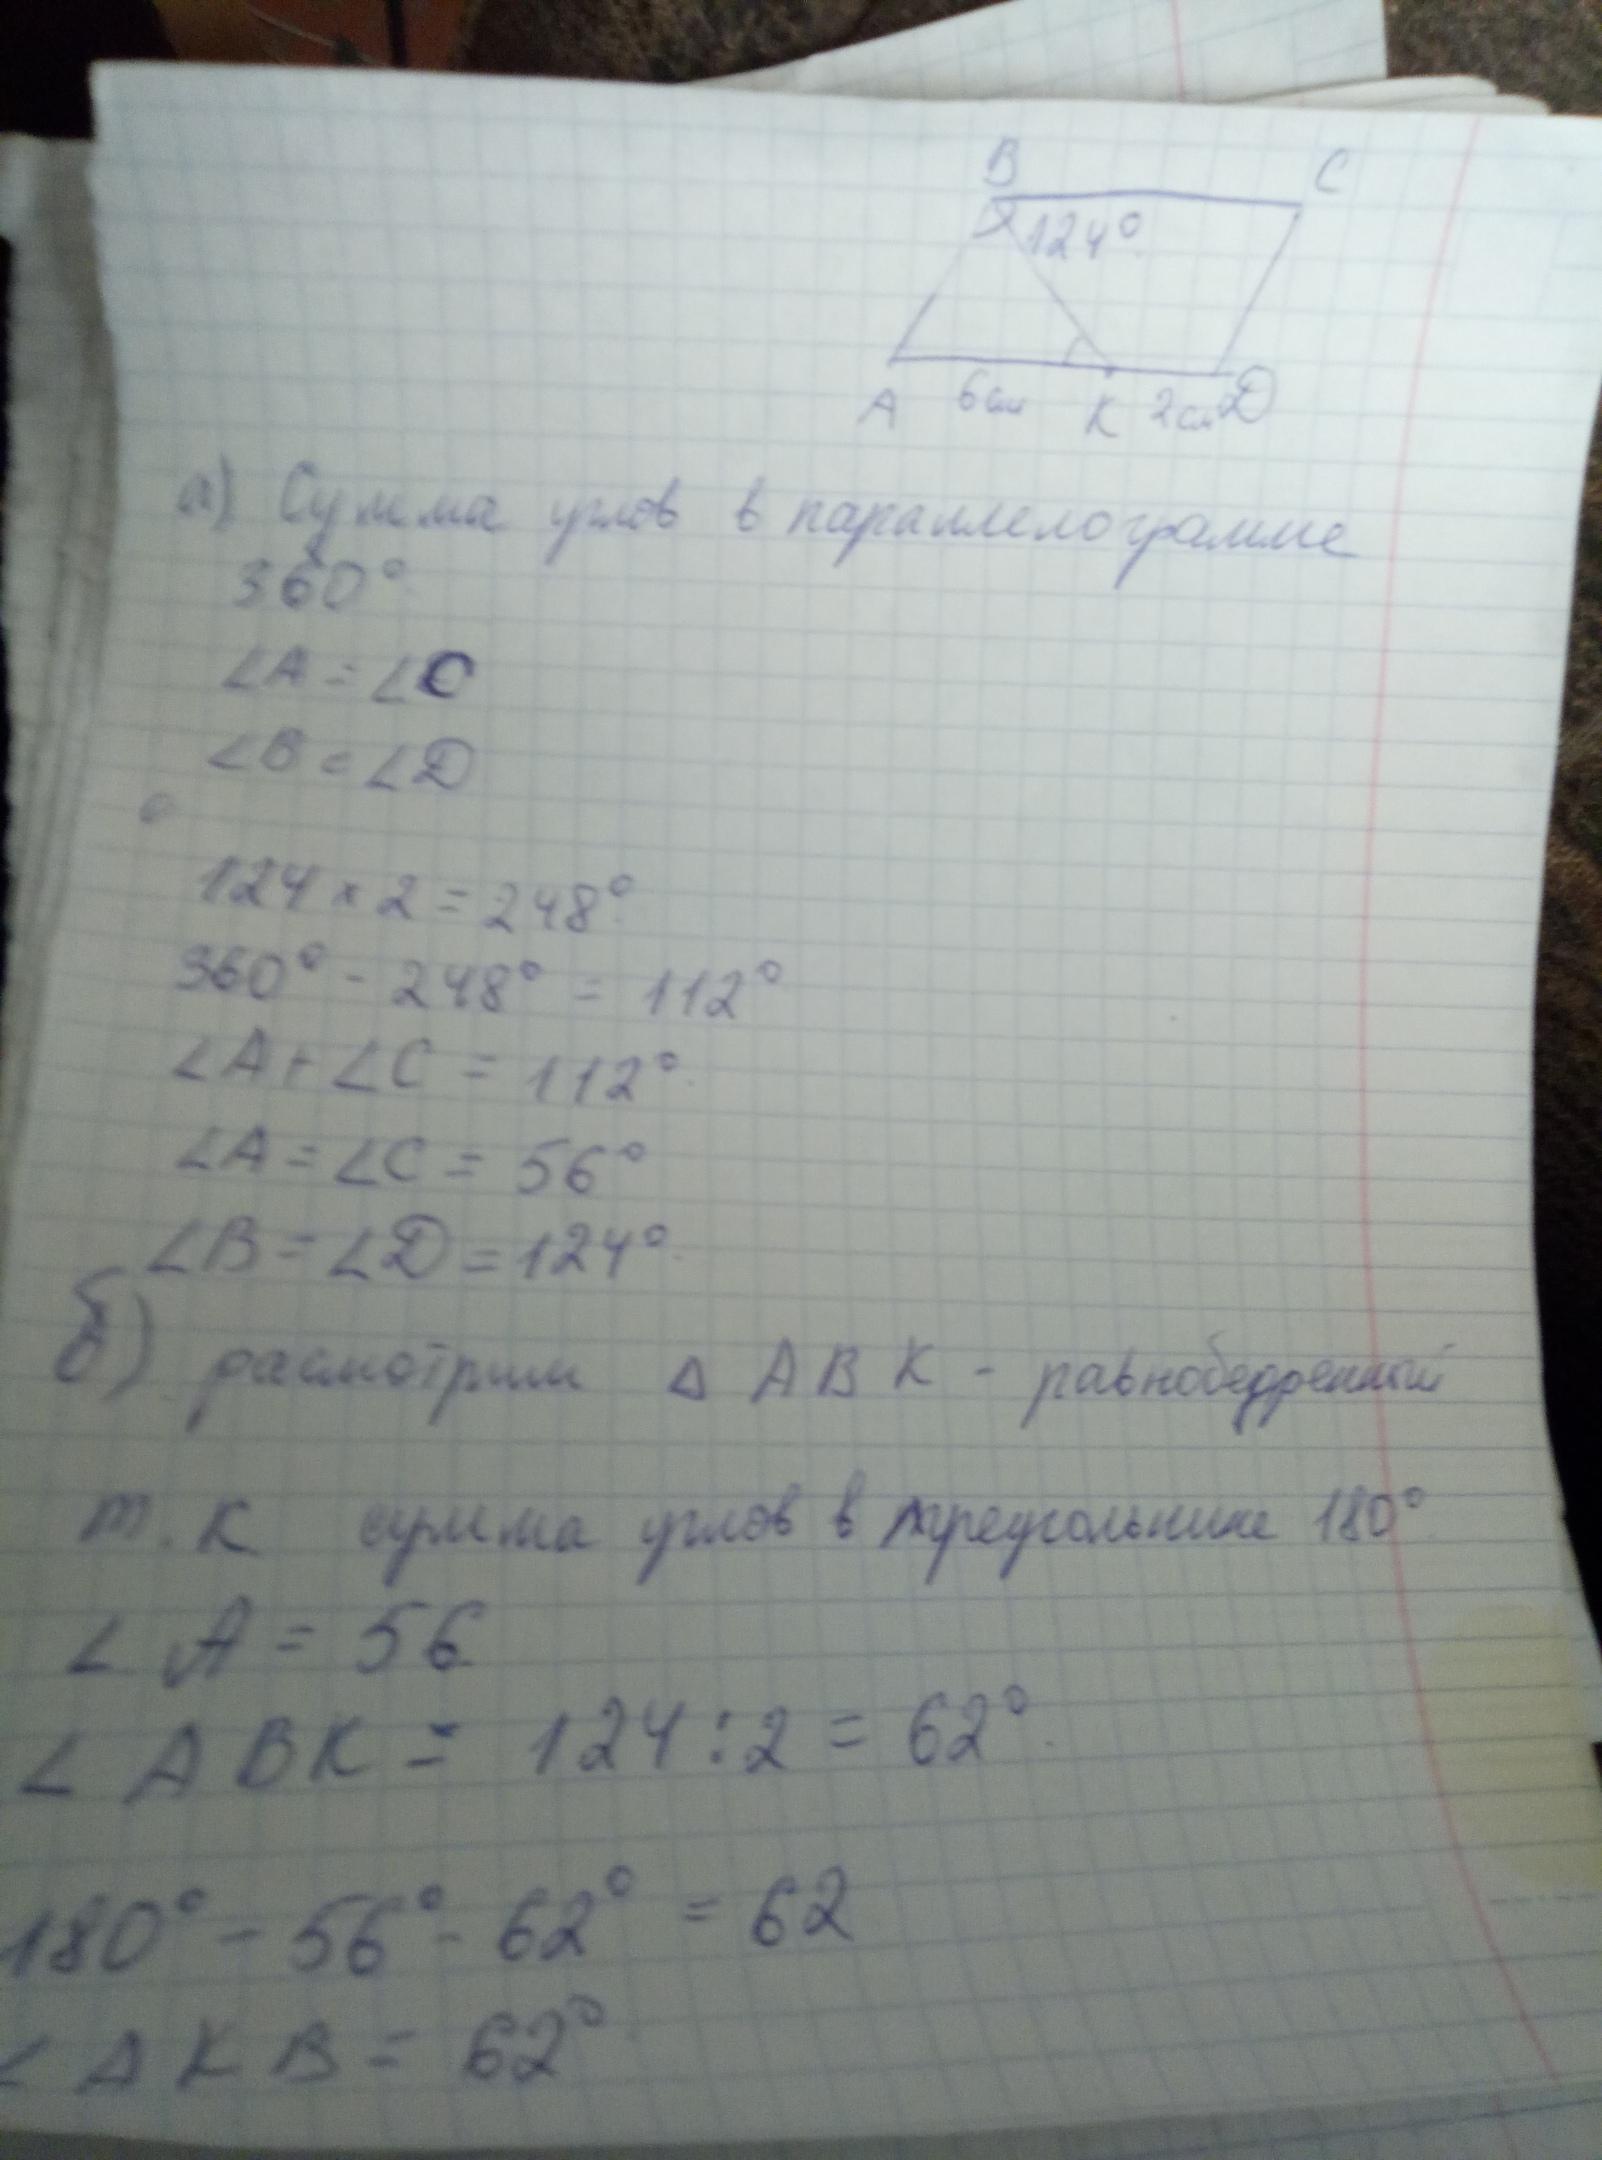 B C
124°
A 6 см K 2 см D
а) Сумма углов в параллелограмме
360°
∠A = ∠C
∠B = ∠D
124 × 2 = 248°
360° - 248° = 112°
∠A + ∠C = 112°
∠A = ∠C = 56°
∠B = ∠D = 124°
б) расмотрим △ ABK - равнобедренный
т.к сумма углов в треугольнике 180°
∠A = 56
∠ABK = 124 : 2 = 62°
180° - 56° - 62° = 62
∠AKB = 62°